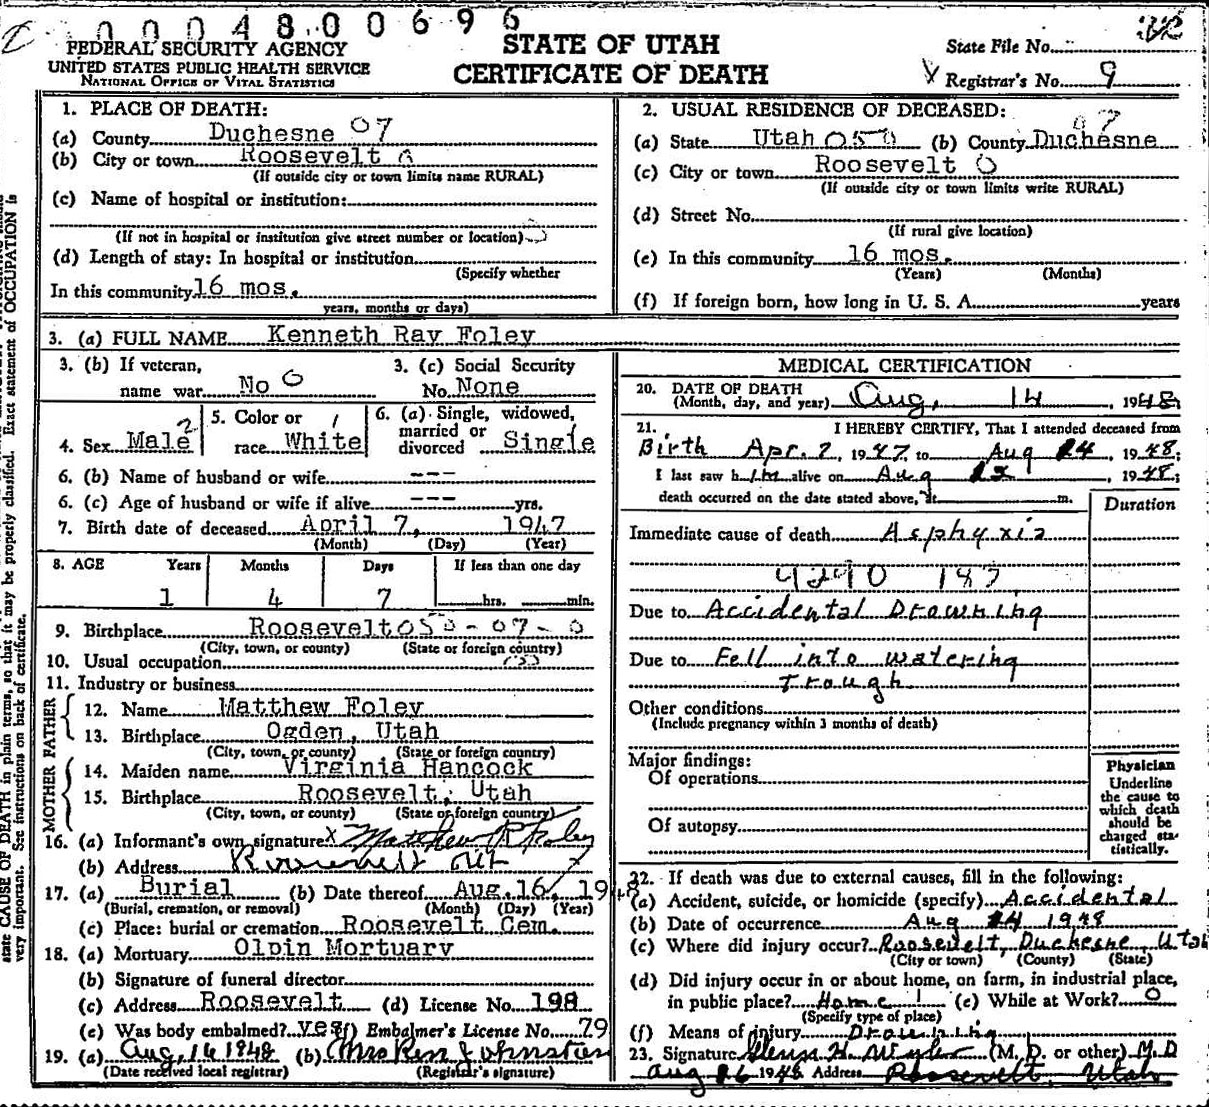 0 0 0 4 8 0 0 6 9 6
FEDERAL SECURITY AGENCY
UNITED STATES PUBLIC HEALTH SERVICE
NATIONAL OFFICE OF VITAL STATISTICS
STATE OF UTAH
CERTIFICATE OF DEATH
State File No.
Registrar's No. 9
1. PLACE OF DEATH:
(a) County Duchesne 07
(b) City or town Roosevelt 0
(If outside city or town limits name RURAL)
(c) Name of hospital or institution:
(If not in hospital or institution give street number or location)
(d) Length of stay: In hospital or institution
(Specify whether
In this community 16 mos.
years, months or days)
2. USUAL RESIDENCE OF DECEASED:
07
(a) State Utah 050 (b) County Duchesne
(c) City or town Roosevelt 0
(If outside city or town limits write RURAL)
(d) Street No.
(If rural give location)
(e) In this community 16 mos.
(Years) (Months)
(f) If foreign born, how long in U. S. A. years
3. (a) FULL NAME Kenneth Ray Foley
3. (b) If veteran,
name war No 0
3. (c) Social Security
No. None
4. Sex Male 2
5. Color or
race White 1
6. (a) Single, widowed,
married or
divorced Single
6. (b) Name of husband or wife ---
6. (c) Age of husband or wife if alive --- yrs.
7. Birth date of deceased April 7, 1947
(Month) (Day) (Year)
8. AGE Years Months Days If less than one day
1 4 7 hrs. min.
9. Birthplace Roosevelt 050-07-0
(City, town, or county) (State or foreign country)
10. Usual occupation
11. Industry or business
FATHER
12. Name Matthew Foley
13. Birthplace Ogden, Utah
(City, town, or county) (State or foreign country)
MOTHER
14. Maiden name Virginia Hancock
15. Birthplace Roosevelt, Utah
(City, town, or county) (State or foreign country)
16. (a) Informant's own signature x Matthew R Foley
(b) Address Roosevelt Ut
17. (a) Burial (b) Date thereof Aug. 16, 1948
(Burial, cremation, or removal) (Month) (Day) (Year)
(c) Place: burial or cremation Roosevelt Cem.
18. (a) Mortuary Olpin Mortuary
(b) Signature of funeral director
(c) Address Roosevelt (d) License No. 198
(e) Was body embalmed? yes (f) Embalmer's License No. 79
19. (a) Aug, 16 1948 (b) Mrs Ken Johnston
(Date received local registrar) (Registrar's signature)
MEDICAL CERTIFICATION
20. DATE OF DEATH
(Month, day, and year) Aug, 14, 1948
21. I HEREBY CERTIFY, That I attended deceased from
Birth Apr. 7, 1947, to Aug 14, 1948;
I last saw him alive on Aug 12, 1948;
death occurred on the date stated above, at m.
Duration
Immediate cause of death Asphyxia
9290 183
Due to Accidental Drowning
Due to Fell into watering
Trough
Other conditions
(Include pregnancy within 3 months of death)
Major findings:
Of operations
Of autopsy
Physician
Underline
the cause to
which death
should be
charged sta-
tistically.
22. If death was due to external causes, fill in the following:
(a) Accident, suicide, or homicide (specify) Accidental
(b) Date of occurrence Aug 14 1948
(c) Where did injury occur? Roosevelt, Duchesne, Utah
(City or town) (County) (State)
(d) Did injury occur in or about home, on farm, in industrial place,
in public place? Home 1 (e) While at Work? 0
(Specify type of place)
(f) Means of injury Drowning
23. Signature (M. D. or other) M.D
Aug 16 1948 Address Roosevelt, Utah
state CAUSE OF DEATH in plain terms, so that it may be properly classified. Exact statement of OCCUPATION is
very important. See instructions on back of certificate.